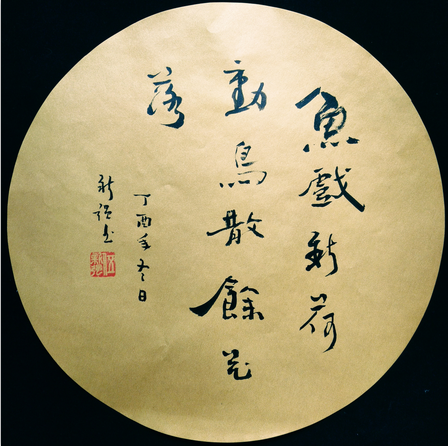 魚戲新荷
動鳥散餘花
落
丁酉年冬日
新